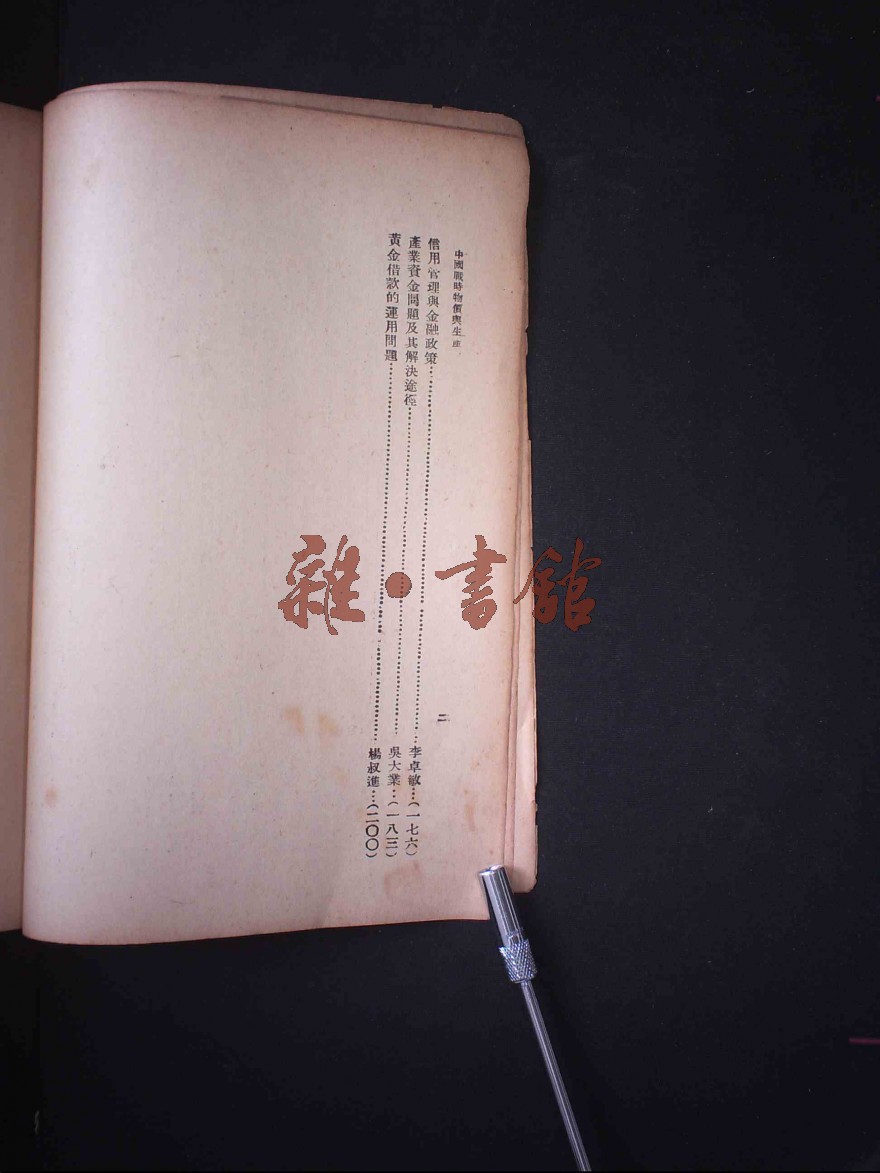 中國戰時物價與生產
二
信用管理與金融政策……李卓敏…(一七六)
產業資金問題及其解決途徑……吳大業…(一八三)
黃金借款的運用問題……楊叔進…(二〇〇)
雜•書館